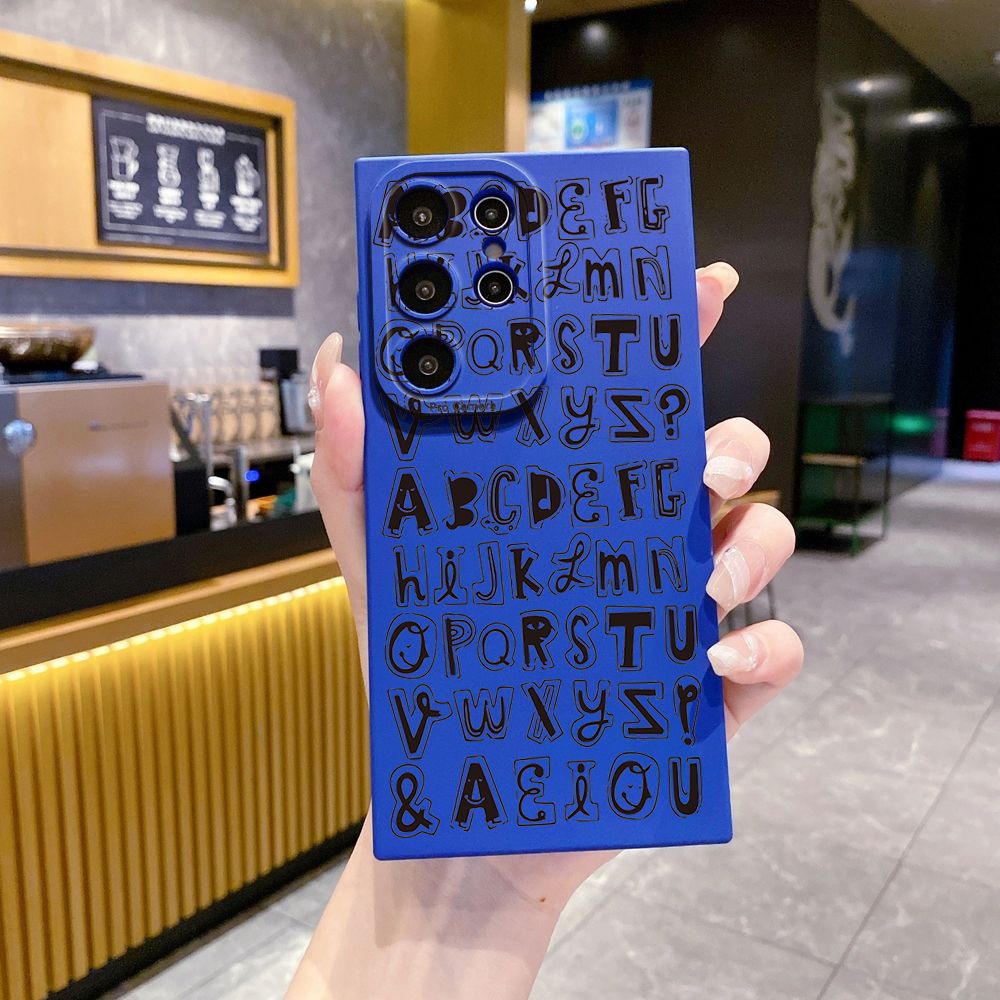 ABCDEFG
hijkLmN
OPQRSTU
VWXYZ?
ABCDEFG
hijkLmN
OPQRSTU
VWXYZ!
& AEiOU